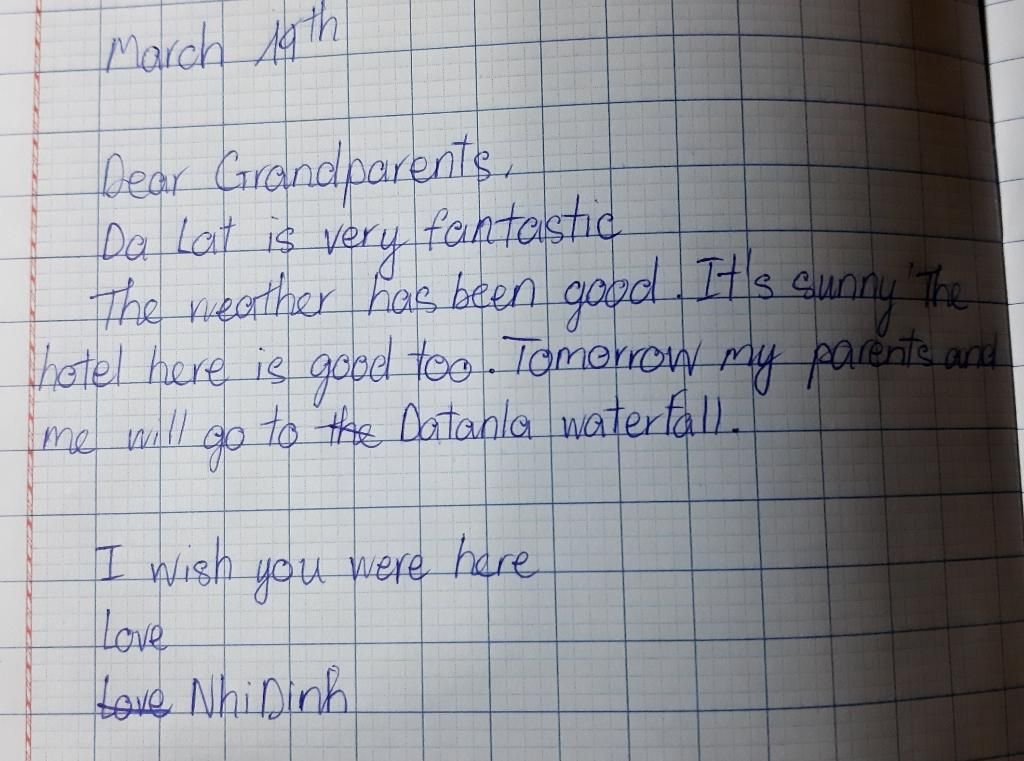 March 19th
Dear Grandparents,
Da Lat is very fantastic
The weather has been good. It's sunny The
hotel here is good too. Tomorrow my parents and
me will go to the Datanla waterfall.
I wish you were here
Love
Love Nhi Dinh